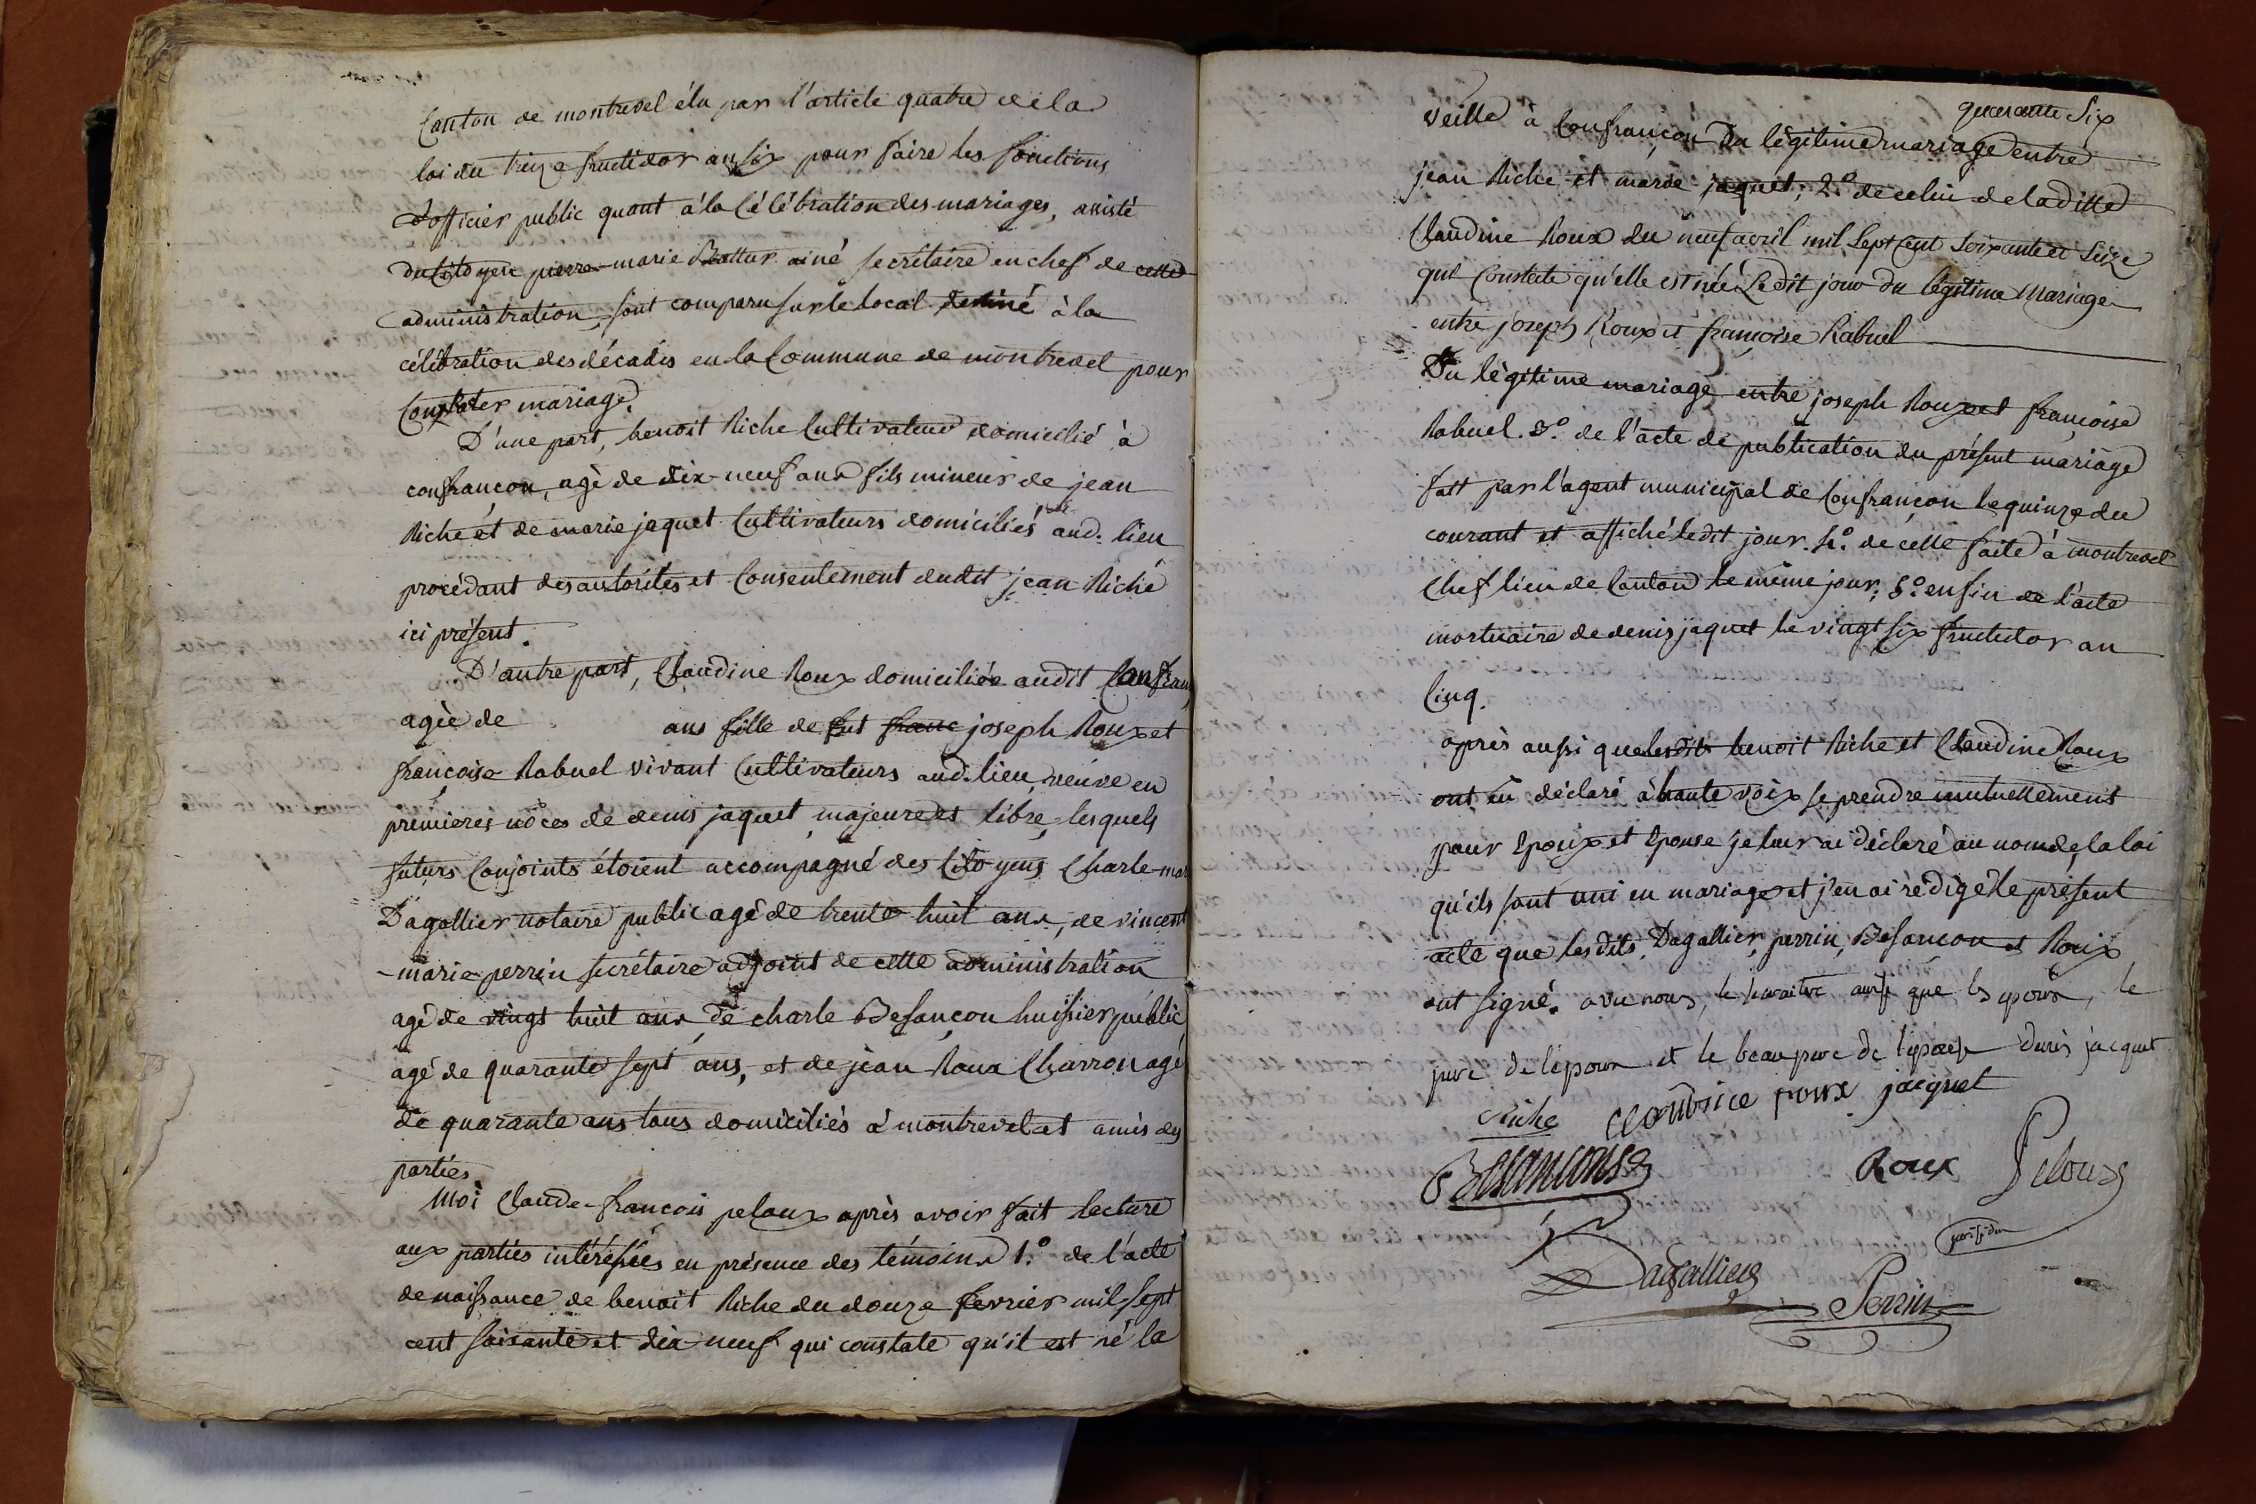 Canton de montrevel élu par l'article quatre de la
loi du treize fructidor an six pour faire les fonctions
d'officier public quant à la Célébration des mariages, assisté
du Citoyen pierre-marie Battur ainé secrétaire en chef de cette
administration, sont comparu sur le local destiné à la
célébration des décadis en la Commune de montrevel pour
Constater mariage.
D'une part, benoit Riche Cultivateur domicilié à
confrançon, agé de dix-neuf ans fils mineur de jean
Riche et de marie jaquet Cultivateurs domiciliés aud. lieu
procédant des autorités et Consentement dudit jean Riche
ici présent.
D'autre part, Claudine Roux domiciliée audit Confran
agée de ans fille de fut franc joseph Roux et
françoise Rabuel vivant Cultivateurs aud. lieu, veuve en
premieres nôces de denis jaquet majeure et libre, lesquels
futurs Conjoints étoient accompagné des Citoyens Charle-mar
Dagallier notaire public agé de trente huit ans, de vincent
-marie perrin secrétaire adjoint de cette administration
agé de vingt huit ans, de charle Besançon huissier public
agé de quarante sept ans, et de jean Roux Charron agé
de quarante ans tous domiciliés à montrevel et amis des
parties
Moi Claude-françois peloux après avoir fait lecture
aux parties intéréssées en présence des témoins 1.º de l'acte
de naissance de benoit Riche du douze fevrier mil sept
cent soixante et dix-neuf qui constate qu'il est né la
quarante six
veille à Confrançon du légitime mariage entre
jean Riche et marie jaquet; 2.º de celui de laditte
Claudine Roux du neuf avril mil Sept Cent Soixante et Seize
qui Constate qu'elle est née Ledit jour du légitime Mariage
entre joseph Roux et françoise Rabuel
Du légitime mariage entre joseph Roux et françoise
Rabuel. 3.º de l'acte de publication du présent mariage
fait par l'agent municipal de Confrançon le quinze du
courant et affiché ledit jour. 4.º de celle faite à montrevel
Chef lieu de Canton le même jour; 5.º enfin de l'acte
mortuaire de denis jaquet le vingt six fructidor an
Cinq.
après aussi que lesdits benoit Riche et Claudine Roux
ont eû déclaré à haute voix se prendre mutuellement
pour Epoux et Epouse je leur ai déclaré au nom de la loi
qu'ils sont uni en mariage et j'en ai rédigé le présent
acte que lesdits Dagallier, perrin, Besançon et Roux
ont signé. avec nous, le ainsi que les epoux, le
pere de l'epoux et le beau pere de l'epouse denis jacquet
Riche Claudine roux jacquet
Besancons
Roux Peloux
président
Dagallier
Perrin